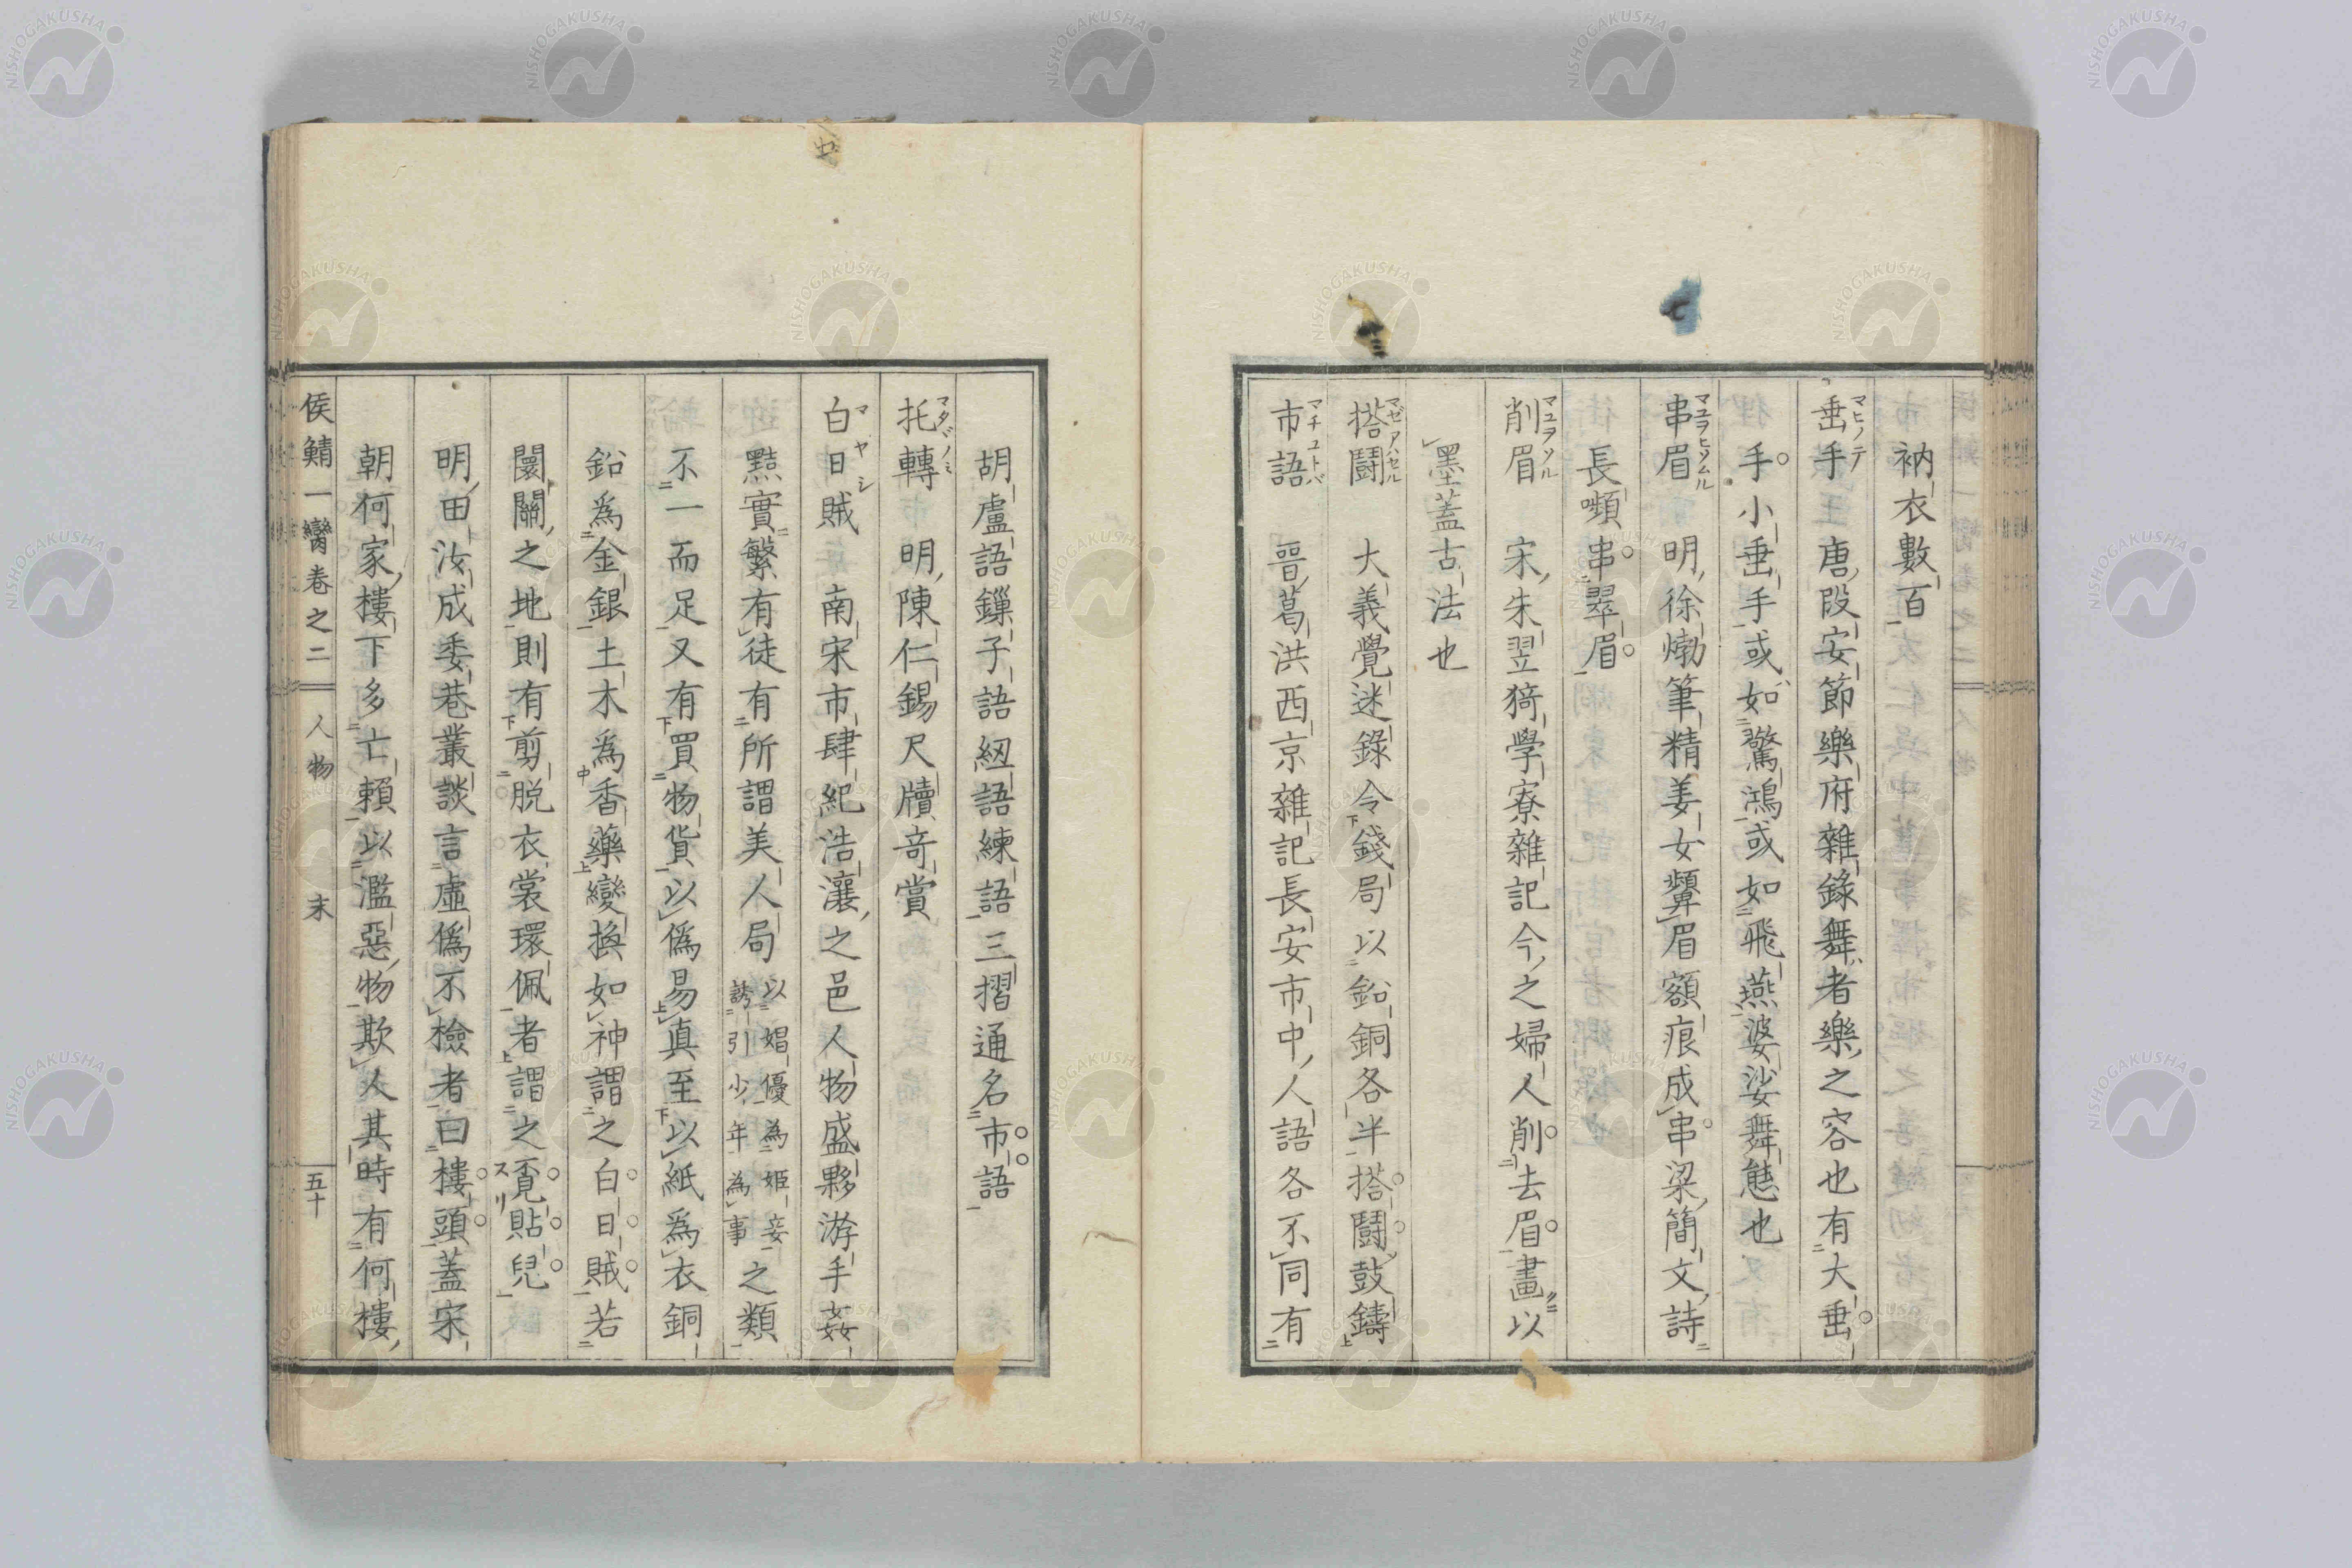 衲衣數百
垂手 唐段安節樂府雜錄舞者樂之容也有大垂
手小垂手或如驚鴻或如飛燕婆娑舞態也
串眉 明徐𤊹筆精姜女顰眉額痕成串梁簡文詩
長嚬串翠眉
削眉 宋朱翌猗學寮雜記今之婦人削去眉畫以
墨蓋古法也
搭鬪 大義覺迷錄令錢局以鉛銅各半搭鬪鼓鑄
市語 晋葛洪西京雜記長安市中人語各不同有
胡盧語鏁子語紐語練語三摺通名市語
托轉 明陳仁錫尺牘奇賞
白日賊 南宋市肆紀浩瀼之邑人物盛夥游手姦
黠實繁有徒有所謂美人局以娼優為姫妾誘引少年為事之類
不一而足又有買物貨以偽易真至以紙為衣銅
鉛為金銀土木為香藥變換如神謂之白日賊若
闤闠之地則有剪脱衣裳環佩者謂之覔貼兒
明田汝成委巷叢談言虛偽不檢者曰樓頭蓋宋
朝何家樓下多亡賴以濫惡物欺人其時有何樓
侯鯖一臠卷之二 人物 末 五十
マヒノテ
マユヲヒソムル
マユヲソル
マゼアハセル
マチコトバ
マタバノミ
マヤシ
スリ
NISHOGAKUSHA